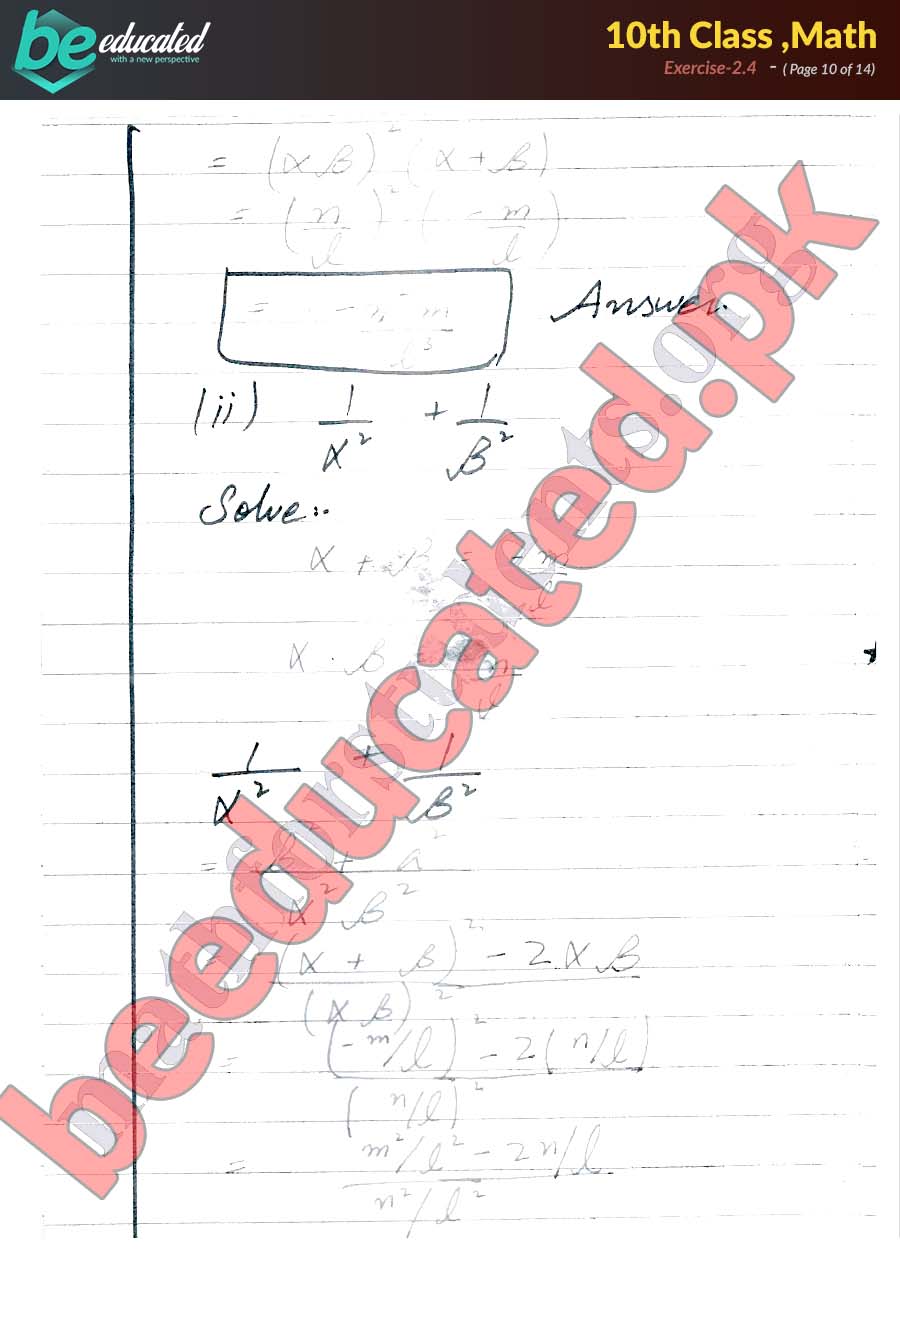 be educated
with a new perspective
10th Class ,Math
Exercise-2.4 - ( Page 10 of 14)
= (αβ)² (α + β)
= (n/l)² (-m/l)
= -n² m / l³ Answer.
(ii) 1/α² + 1/β²
Solve:.
α + β = -m/l
α . β = n/l
1/α² + 1/β²
= β² + α² / α² β²
= (α + β)² - 2αβ / (αβ)²
= (-m/l)² - 2(n/l) / (n/l)²
= m²/l² - 2n/l / n²/l²
beeducated.pk